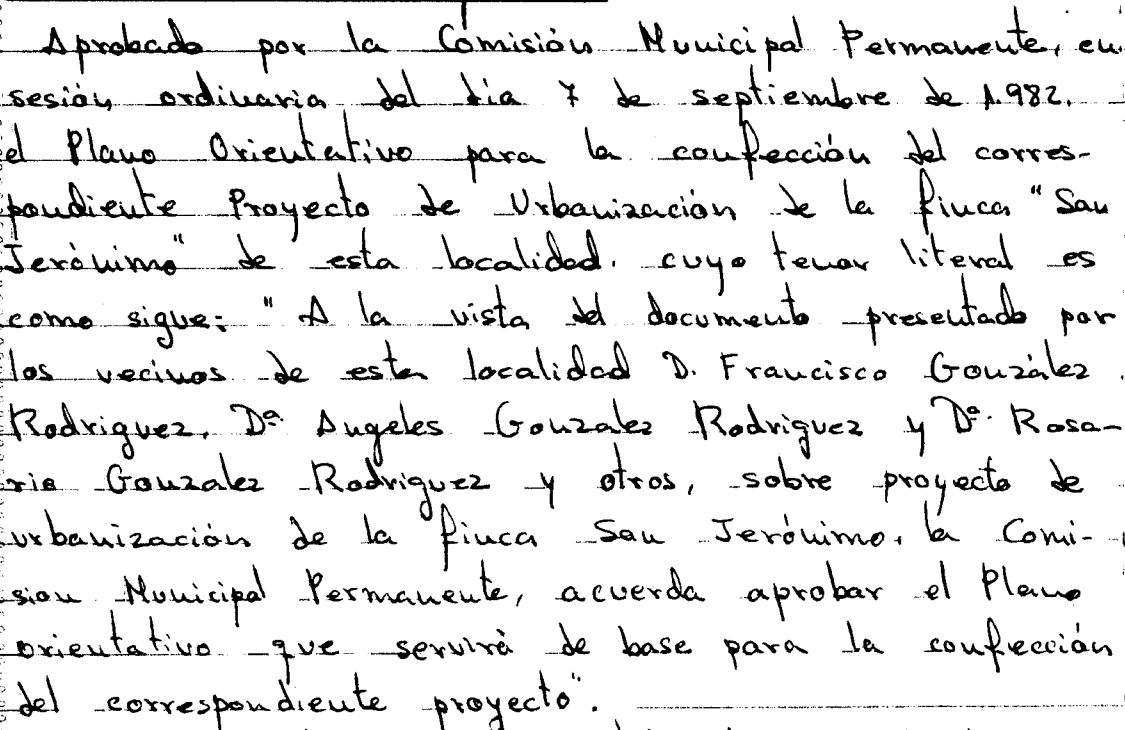 Aprobado por la Comisión Municipal Permanente, en
sesión ordinaria del día 7 de septiembre de 1.982,
el Plano Orientativo para la confección del corres-
pondiente Proyecto de Urbanización de la finca "San
Jerónimo" de esta localidad, cuyo tenor literal es
como sigue: "A la vista del documento presentado por
los vecinos de esta localidad D. Francisco González
Rodriguez, Dª. Angeles Gonzalez Rodriguez y Dª. Rosa-
rio Gonzalez Rodriguez y otros, sobre proyecto de
urbanización de la finca San Jerónimo, la Comi-
sion Municipal Permanente, acuerda aprobar el Plano
orientativo que servirá de base para la confección
del correspondiente proyecto".